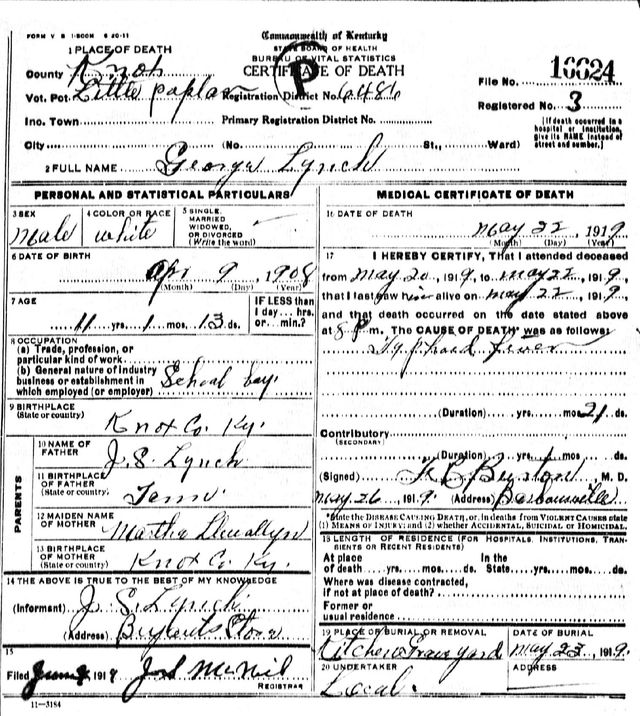 FORM V S 1-500M 6 20-11
Commonwealth of Kentucky
STATE BOARD OF HEALTH
BUREAU OF VITAL STATISTICS
CERTIFICATE OF DEATH
P
1 PLACE OF DEATH
County Knox
Vot. Pct. Little poplar Registration District No. 6486
File No. 16624
Registered No. 3
Inc. Town Primary Registration District No.
(If death occurred in a hospital or institution, give its NAME instead of street and number.)
City (No. St., Ward)
2 FULL NAME George Lynch
PERSONAL AND STATISTICAL PARTICULARS
3 SEX Male
4 COLOR OR RACE white
5 SINGLE, MARRIED WIDOWED, OR DIVORCED (Write the word)
6 DATE OF BIRTH
Apr 9, 1908
(Month) (Day) (Year)
7 AGE
11 yrs. 1 mos. 13 ds.
IF LESS than 1 day... hrs. or... min.?
8 OCCUPATION
(a) Trade, profession, or particular kind of work
(b) General nature of industry business or establishment in which employed (or employer) School boy
9 BIRTHPLACE
(State or country)
Knox Co. Ky.
PARENTS
10 NAME OF FATHER
J. S. Lynch
11 BIRTHPLACE OF FATHER
(State or country) Tenn.
12 MAIDEN NAME OF MOTHER
Martha
13 BIRTHPLACE OF MOTHER
(State or country) Knox Co Ky.
14 THE ABOVE IS TRUE TO THE BEST OF MY KNOWLEDGE
(Informant) J. S. Lynch
(Address)
15
Filed 191 McNeil
REGISTRAR
11-3184
MEDICAL CERTIFICATE OF DEATH
16 DATE OF DEATH
May 22, 1919
(Month) (Day) (Year)
17 I HEREBY CERTIFY, That I attended deceased
from May 20, 1919, to May 22, 1919,
that I last saw him alive on May 22, 1919,
and that death occurred on the date stated above
at 8 P m. The CAUSE OF DEATH* was as follows:
Typhoid fever
(Duration) yrs. mos. 21 ds.
Contributory
(SECONDARY)
(Duration) yrs. mos. ds.
(Signed) M. D.
May 26, 1919. (Address) Barbourville
*State the DISEASE CAUSING DEATH, or, in deaths from VIOLENT CAUSES state (1) MEANS OF INJURY; and (2) whether ACCIDENTAL, SUICIDAL or HOMICIDAL.
18 LENGTH OF RESIDENCE (FOR HOSPITALS, INSTITUTIONS, TRANSIENTS OR RECENT RESIDENTS)
At place of death yrs. mos. ds. In the State yrs. mos. ds.
Where was disease contracted, if not at place of death?
Former or usual residence
19 PLACE OF BURIAL OR REMOVAL
Grave yard
DATE OF BURIAL
May 23, 1919.
20 UNDERTAKER
Local.
ADDRESS